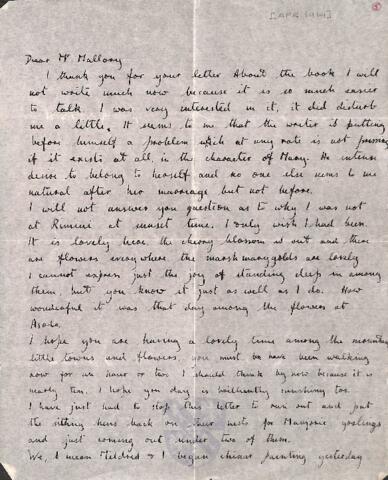 [APR 1914]
Dear Mr Mallory
I thank you for your letter about the book I will
not write much now because it is so much easier
to talk I was very interested in it, it did disturb
me a little. It seems to me that the writer is putting
before himself a problem which at any rate is not pressing
if it exists at all, in the character of Mary. Her intense
desire to belong to herself and no one else seems to me
natural after her marriage but not before.
I will not answer you question as to why I was not
at Rimini at sunset time. I only wish I had been.
It is lovely here. the cherry blossom is out and there
are flowers everywhere the marsh marygolds are lovely
I cannot express just the joy of standing deep in among
them, but you know it just as well as I do. How
wonderful it was that day among the flowers at
Asolo.
I hope you are having a lovely time among the mountains
little towns and flowers, you must be have been walking
now for an hour or two I should think by now because it is
nearly ten. I hope you day is brilliantly sunshing too.
I have just had to stop this letter to run out and put
the sitting hens back on their nests for Marjorie goslings
and just coming out under two of them.
We, I mean Mildred & I began china painting yesterday